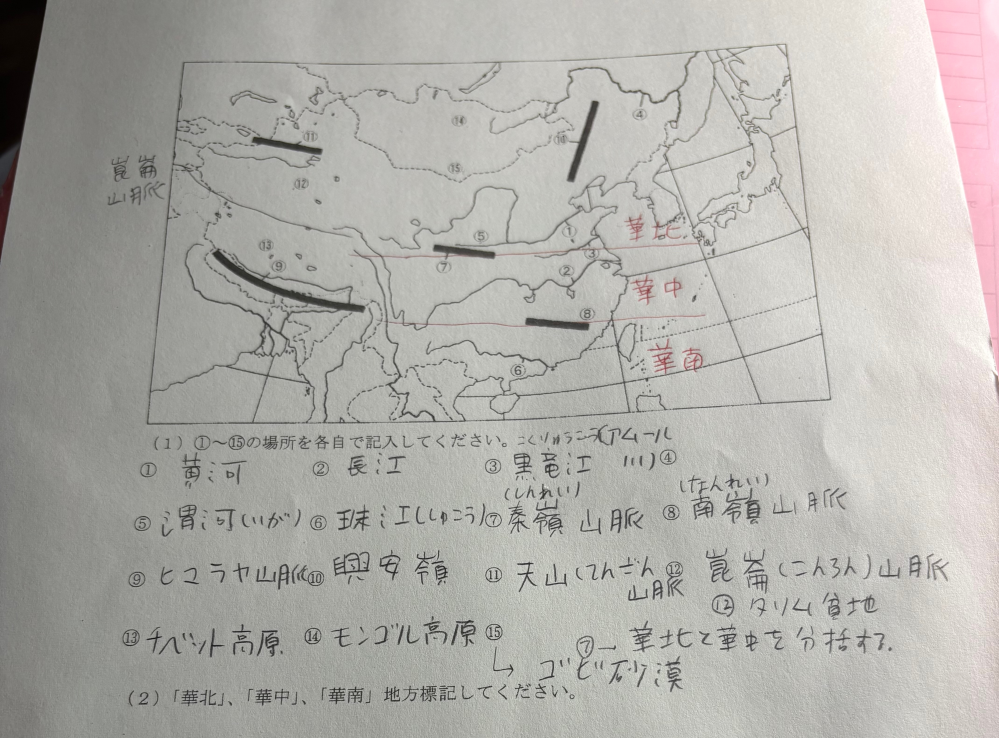 ⑪
⑭
④
⑯
⑮
⑫
崑崙
山脈
⑤
①
華北
⑬
⑦
③
⑨
②
華中
⑧
華南
⑥
(1)①~⑮の場所を各自で記入してください。こくりゅうこう(アムール
① 黄河 ② 長江 ③ 黒竜江 川) ④
⑤ 渭河(いが) ⑥ 珠江(しゅこう) ⑦ 秦嶺(しんれい)山脈 ⑧ 南嶺(なんれい)山脈
⑨ ヒマラヤ山脈 ⑩ 興安嶺 ⑪ 天山(てんざん 山脈 ⑫ 崑崙(こんろん)山脈
⑫ タリム盆地
⑬ チベット高原 ⑭ モンゴル高原 ⑮ ⑦→ 華北と華中を分括する.
↳ ゴビ砂漠
(2)「華北」、「華中」、「華南」地方標記してください。